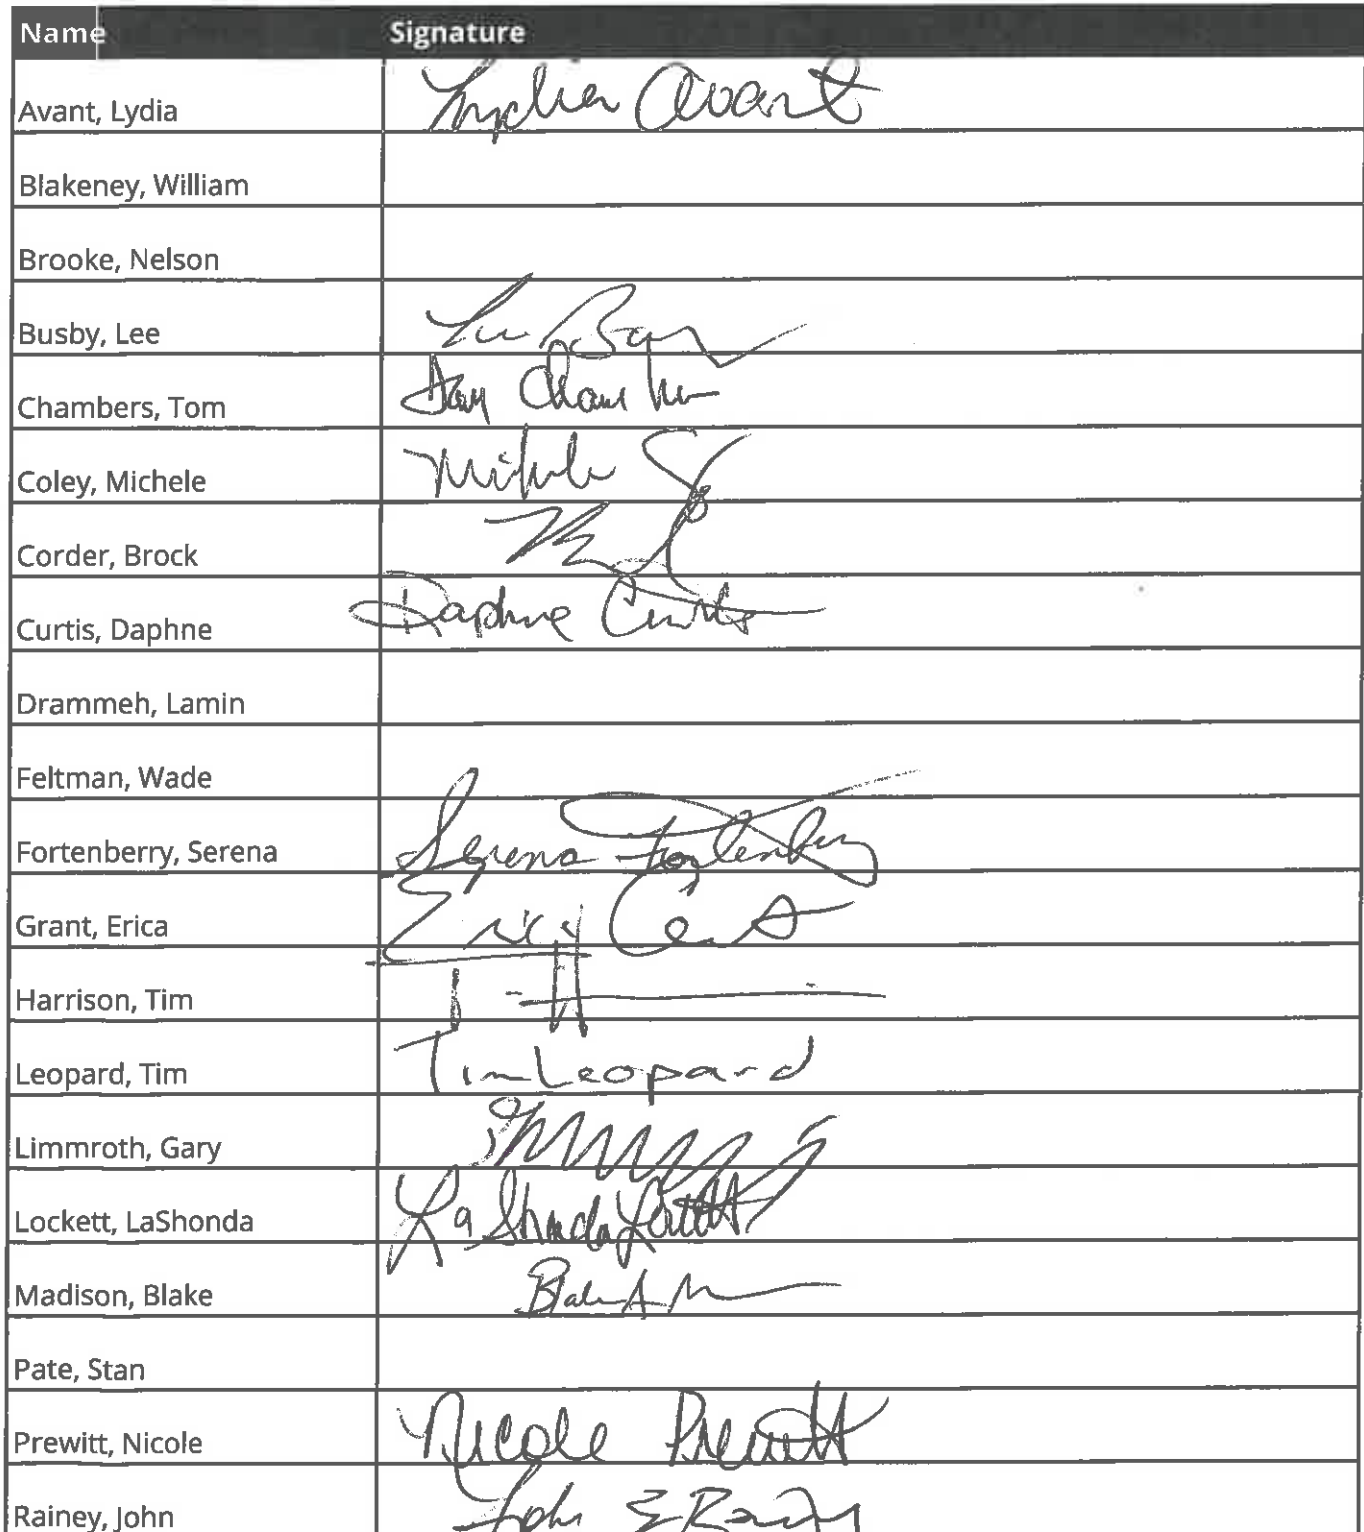 Name Signature
Avant, Lydia Lydia Avant
Blakeney, William
Brooke, Nelson
Busby, Lee
Chambers, Tom
Coley, Michele
Corder, Brock
Curtis, Daphne Daphne Curtis
Drammeh, Lamin
Feltman, Wade
Fortenberry, Serena Serena Fortenberry
Grant, Erica Erica
Harrison, Tim
Leopard, Tim Tim Leopard
Limmroth, Gary
Lockett, LaShonda LaShonda Lockett
Madison, Blake
Pate, Stan
Prewitt, Nicole Nicole Prewitt
Rainey, John John E Rainey